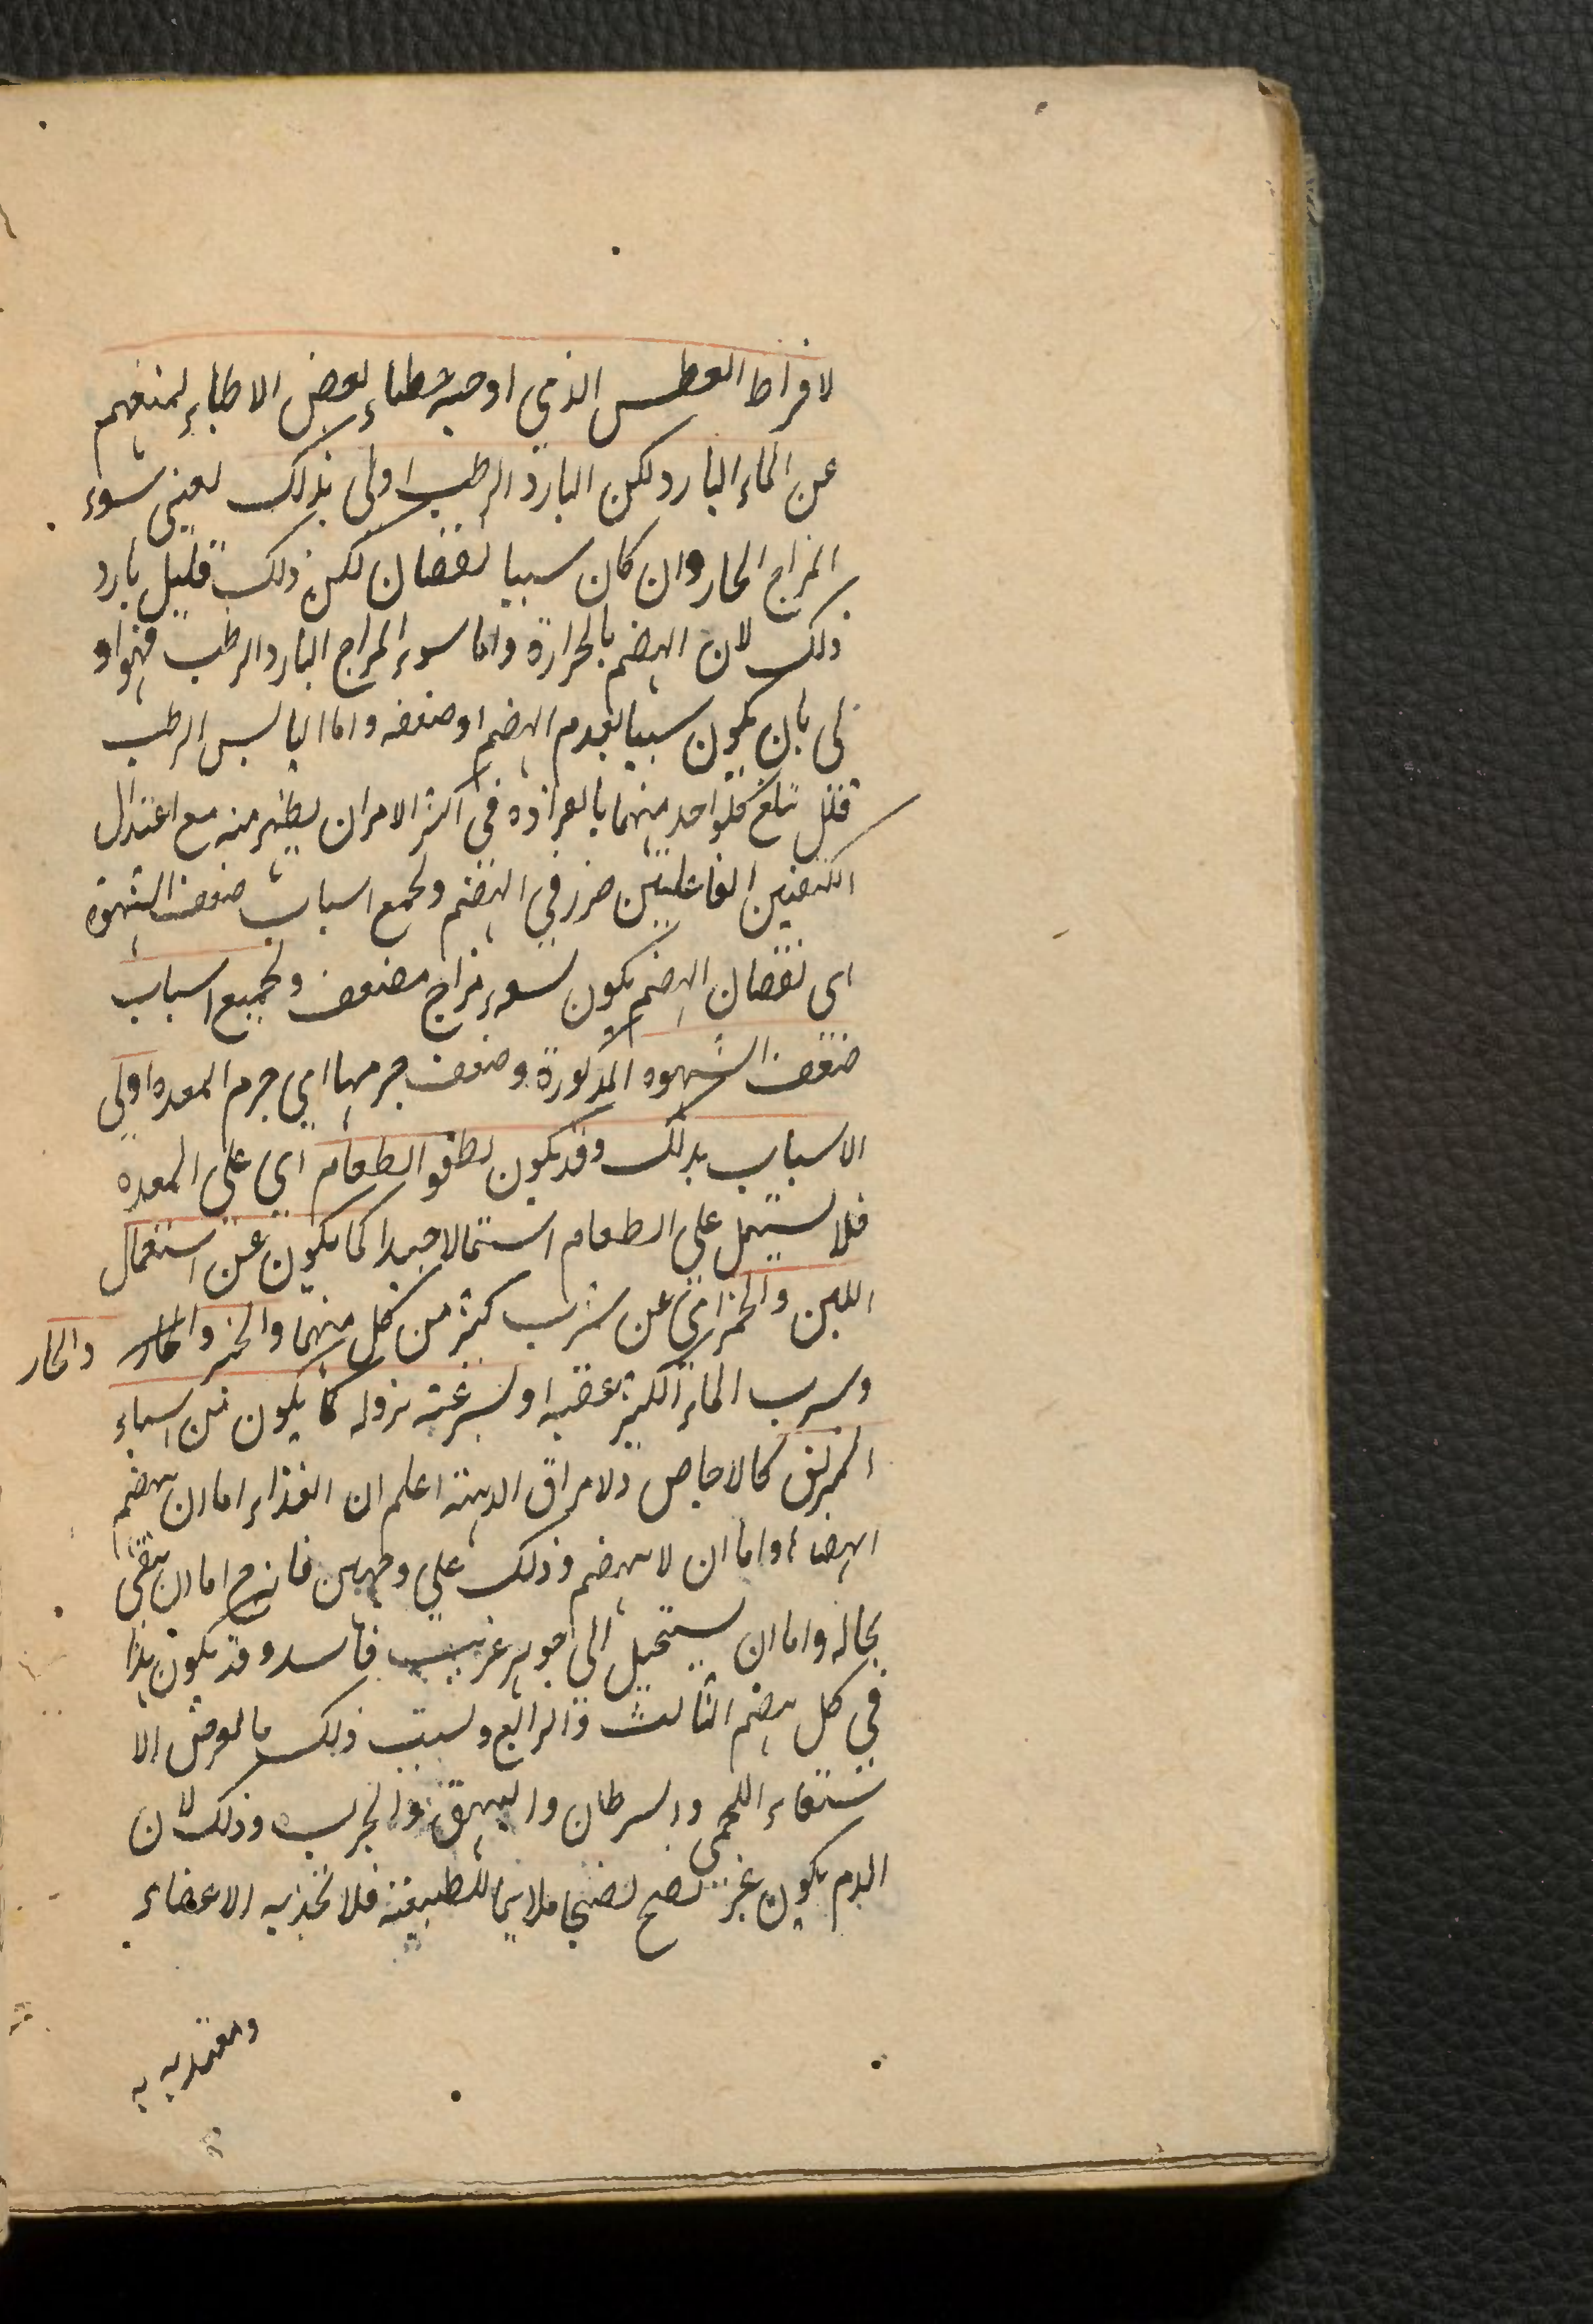 لافراط العطس الذي اوجبه خطاء بعض الاطباء لمنعهم
عن الماء البارد لكن البارد الرطب اولى بذلك يعني سوء
المزاج الحار وان كان سببا لنقصان لكن ذلك قليل بارد
ذلك لان الهضم بالحرارة واما سوء المزاج البارد الرطب فهو او
لى بان يكون سببا لعدم الهضم او ضعفه واما اليابس الرطب
فقل تبلغ كلواحد منهما بالعراده في اكثر الامر ان يظهر منه مع اعتدال
الكيفيتين الفاعليتين ضرر في الهضم ولجمع اسباب ضعف الشهوة
اى نقصان الهضم يكون لسوء مزاج مضعف ولجميع اسباب
ضعف الشهوه المذكورة وضعف جرمها اي جرم المعده اولى
الاسباب بذلك وقد يكون لطفو الطعام اي على المعده
فلا تشتمل على الطعام اشتمالا جيدا كما يكون عن استعمال
اللبن والخمر اى عن شرب كثير من كل منهما والخبز والحار والحار
وشرب الماء الكثير عقبه او لسرعته نزوله كما يكون من اسباء
المزلق كالاجاص والامراق الدهنة اعلم ان الغذاء اما ان ينهضم
الهضا واما ان لا ينهضم وذلك على وجهين فانه ح اما ان يبقى
بحاله واما ان يستحيل الى جوهر غريب فاسد وقد يكون هذا
في كل هضم الثالث والرابع وبسبب ذلك ما يعرض الا
ستسقاء اللحمى والسرطان والبهق والجرب وذلك لان
الدم يكون غير نضج نضجا ملايما للطبيعة فلا تجذبه الاعضاء
ومغتذيه به